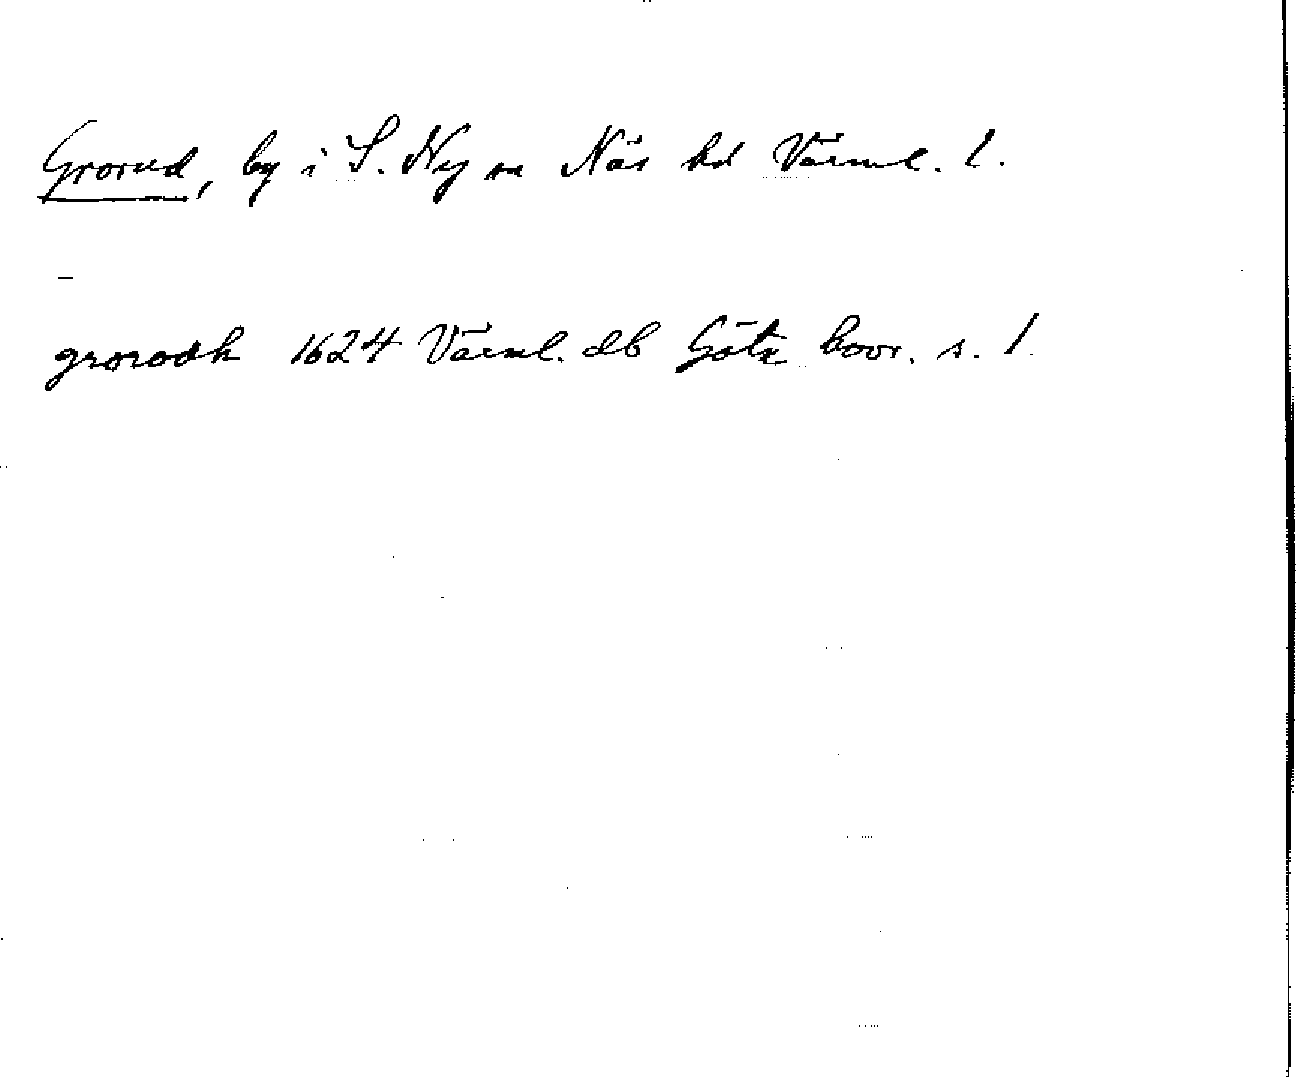 Grorud, by i S. Ny sn Näs hd Värml. l.
–
grorodh 1624 Värml. db Göta hovr. s. 1.